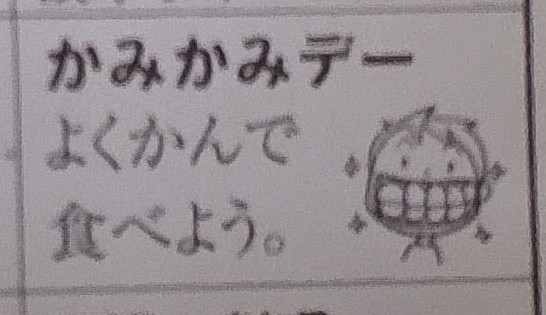 かみかみデー
よくかんで
食べよう。